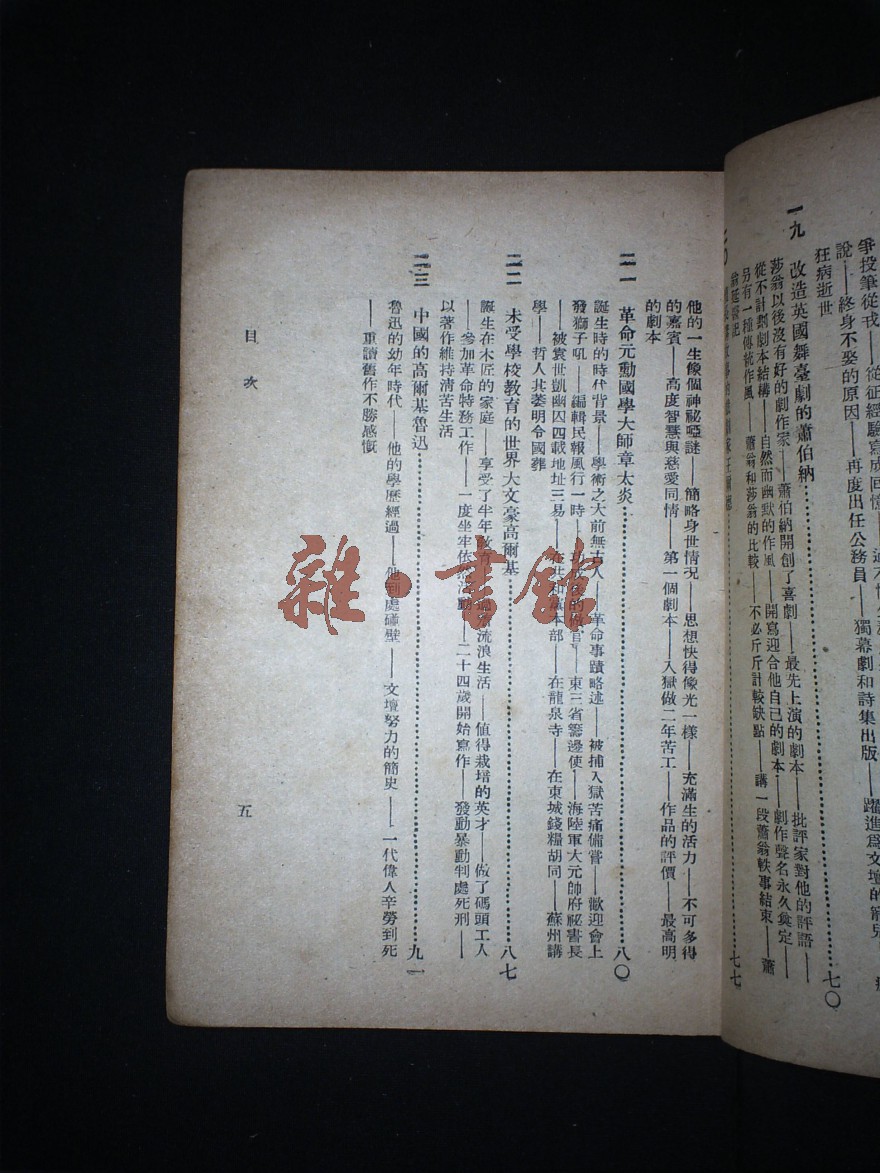 爭投筆從戎——從征經驗寫成回憶
說——終身不娶的原因——再度出任公務員——獨幕劇和詩集出版——躍進為文壇的寵兒
狂病逝世
七〇
一九 改造英國舞臺劇的蕭伯納
莎翁以後沒有好的劇作家——蕭伯納開創了喜劇——最先上演的劇本——批評家對他的評語——
從不計劃劇本結構——自然而幽默的作風——開寫迎合他自己的劇本——劇作聲名永久奠定——
另有一種傳統作風——蕭翁和莎翁的比較——不必斤斤計較缺點——講一段蕭翁軼事結束——蕭
二〇
七七
他的一生像個神祕啞謎——簡略身世情況——思想快得像光一樣——充滿生的活力——不可多得
的嘉賓——高度智慧與慈愛同情——第一個劇本——入獄做二年苦工——作品的評價——最高明
的劇本
二一 革命元勳國學大師章太炎 八〇
誕生時的時代背景——學術之大前無古人——革命事蹟略述——被捕入獄苦痛備嘗——歡迎會上
發獅子吼——編輯民報風行一時——功成後的——東三省籌邊使——海陸軍大元帥府祕書長
——被袁世凱幽囚四載地址三易——在共和黨本部——在龍泉寺——在東城錢糧胡同——蘇州講
學——哲人其萎明令國葬
二二 未受學校教育的世界大文豪高爾基 八七
誕生在木匠的家庭——享受了半年教育——流浪生活——值得栽培的英才——做了碼頭工人
——參加革命特務工作——一度坐牢依然活動——二十四歲開始寫作——發動暴動判處死刑——
以著作維持清苦生活
二三 中國的高爾基魯迅 九一
魯迅的幼年時代——他的學歷經過——他到處碰壁——文壇努力的簡史——一代偉人辛勞到死
——重讀舊作不勝感慨
目次
五
雜·書館